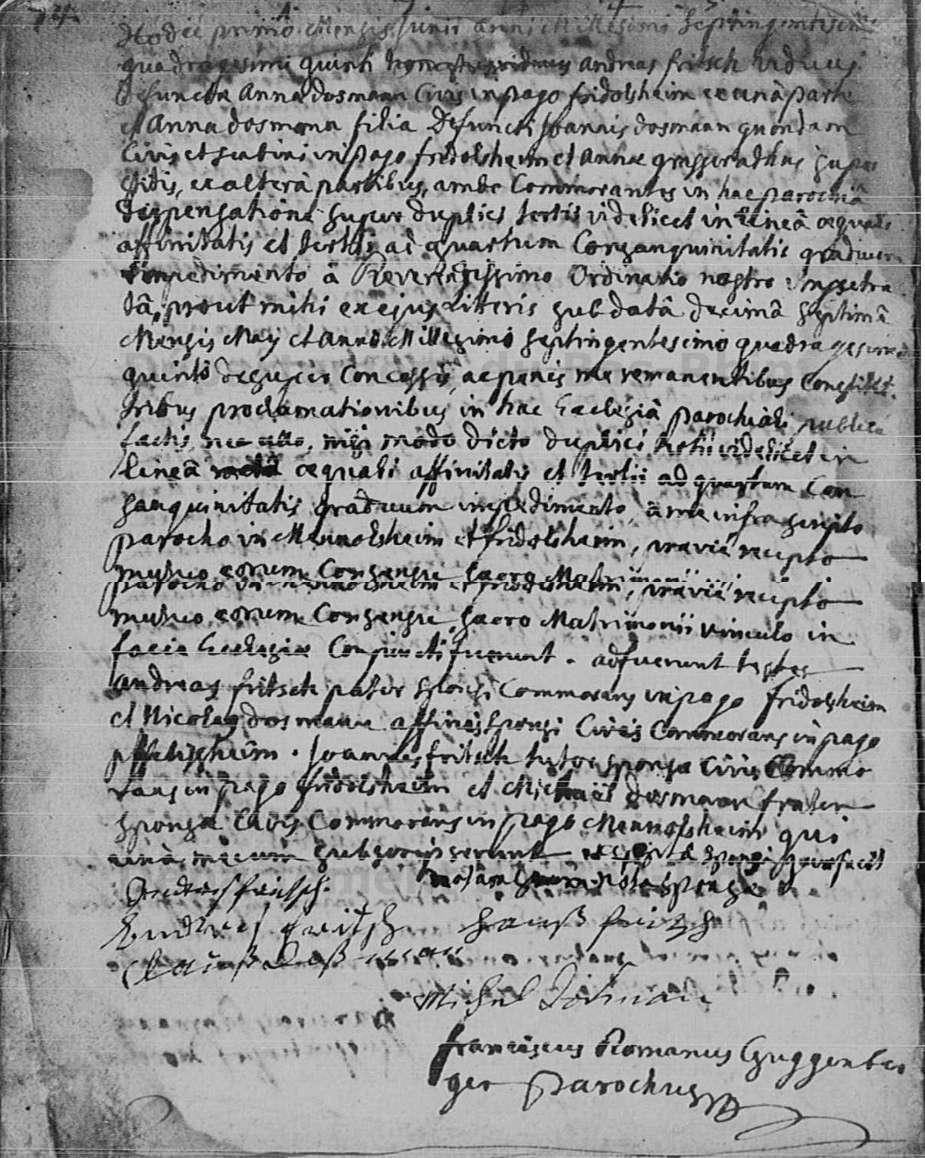 Hodie primo Mensis Junii anni Millesimi Septingentesimi
quadragesimi quinti Andreas fritsch viduus
defunctae Anna dosmann Civis in pago fridolsheim ex una parte
et Anna dosmann filia Defuncti Joannis dosmann quondam
Civis et scabini in pago fridolsheim et Annae
ex altera partibus, ambo Commorantes in hac parochia
dispensatione super duplici tertii videlicet in linea aequali
affinitatis et tertii ad quartum Consanguinitatis graduum
impedimento a Reverendissimo Ordinario nostro impetra
ta, prout mihi ex ejus litteris sub data decima septima
Mensis May et Anno Millesimo Septingentesimo quadragesimo
quinto desuper Concessis, ac penes me remanentibus Constitit.
tribus proclamationibus in hac Ecclesia parochiali publice
factis, nec ullo, nisi modo dicto duplici tertii videlicet in
linea aequali affinitatis et tertii ad quartum Con
sanguinitatis graduum impedimento, a me infra scripto
parocho in Mennolsheim et fridolsheim, recepto
mutuo eorum Consensu Sacro Matrimonii
parocho in Mennolsheim et fridolsheim, recepto
mutuo eorum Consensu, Sacro Matrimonii vinculo in
facie Ecclesiae Conjuncti fuerunt. adfuerunt testes
Andreas fritsch pater sponsi Commorans in pago fridolsheim
et Nicolaus dosmann affinis sponsi Civis Commorans in pago
pfettisheim. Joannes fritsch tutor sponsae Civis Commo
rans in pago fridolsheim et Michael dosmann frater
sponsae Civis Commorans in pago Mennolsheim qui
una mecum subscripserunt
sponsae
Andres fritsch.
Andres fritsch hanß fritsch
Clauß doßman
Michel doßman
franciscus Romanus Guggenber
ger Parochus